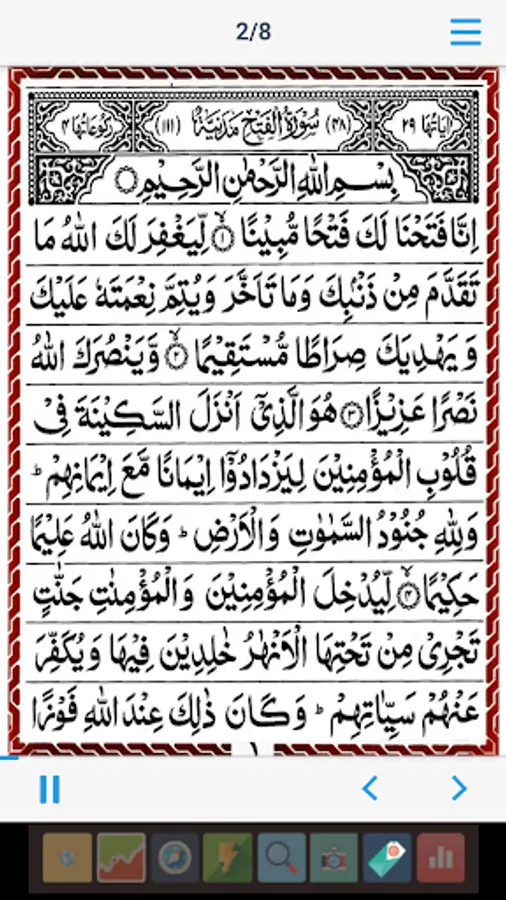 2/8
اٰیاتہا ۲۹ (۴۸) سُوۡرَۃُ الۡفَتۡحِ مَدَنِیَّۃٌ (۱۱۱) رکوعاتہا ۴
بِسۡمِ اللهِ الرَّحۡمٰنِ الرَّحِیۡمِ
اِنَّا فَتَحۡنَا لَكَ فَتۡحًا مُّبِیۡنًا ۙ﴿۱﴾ لِّیَغۡفِرَ لَكَ اللهُ مَا
تَقَدَّمَ مِنۡ ذَنۡۢبِكَ وَمَا تَاَخَّرَ وَیُتِمَّ نِعۡمَتَهٗ عَلَیۡكَ
وَیَهۡدِیَكَ صِرَاطًا مُّسۡتَقِیۡمًا ۙ﴿۲﴾ وَّیَنۡصُرَكَ اللهُ
نَصۡرًا عَزِیۡزًا ﴿۳﴾ هُوَ الَّذِیۡۤ اَنۡزَلَ السَّكِیۡنَةَ فِیۡ
قُلُوۡبِ الۡمُؤۡمِنِیۡنَ لِیَزۡدَادُوۡۤا اِیۡمَانًا مَّعَ اِیۡمَانِهِمۡ ؕ
وَلِلّٰهِ جُنُوۡدُ السَّمٰوٰتِ وَالۡاَرۡضِ ؕ وَكَانَ اللهُ عَلِیۡمًا
حَكِیۡمًا ۙ﴿۴﴾ لِّیُدۡخِلَ الۡمُؤۡمِنِیۡنَ وَالۡمُؤۡمِنٰتِ جَنّٰتٍ
تَجۡرِیۡ مِنۡ تَحۡتِهَا الۡاَنۡهٰرُ خٰلِدِیۡنَ فِیۡهَا وَیُكَفِّرَ
عَنۡهُمۡ سَیِّاٰتِهِمۡ ؕ وَكَانَ ذٰلِكَ عِنۡدَ اللهِ فَوۡزًا
۱